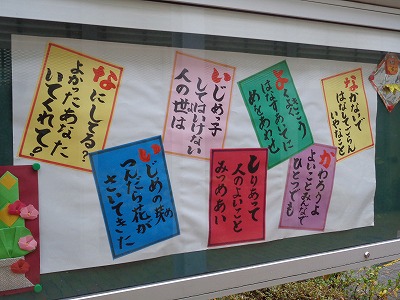 なかないで
はなしてごらん
いやなこと
かわろうよ
よいことみんなで
ひとつでも
よくきこう
はなすあいてに
めをあわせ
しりあって
人のよいこと
みつめあい
いじめっ子
してはいけない
人の世は
いじめの芽
め
つんだら花が
さいてきた
なにしてる?
よかったあなた
いてくれて。